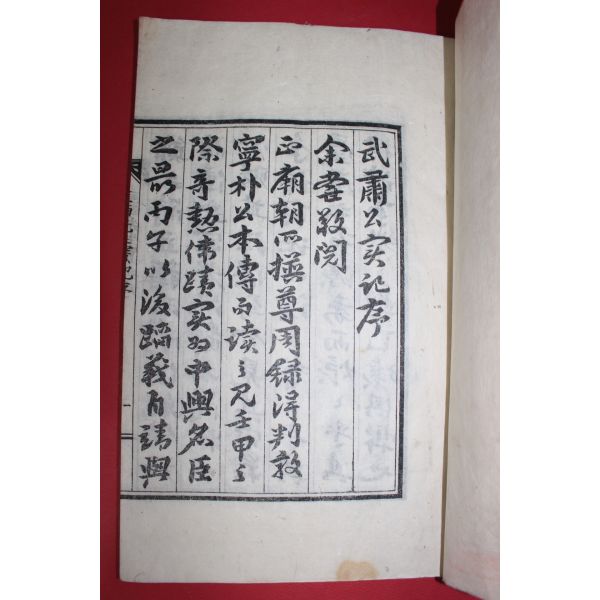 武肅公実記序
余嘗敬閱
正廟朝所撰尊周錄得判敦
寧朴公本傳而読之見壬甲之
際奇勲偉蹟実為中興名臣
之最丙子以後蹈義自靖與